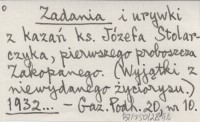 Zadania i urywki
z kazań ks. Józefa Stolar-
czyka, pierwszego proboszcza
Zakopanego. (Wyjątki z
niewydanego życiorysu.)
1932... – Gaz. Podh. 20, nr 10.